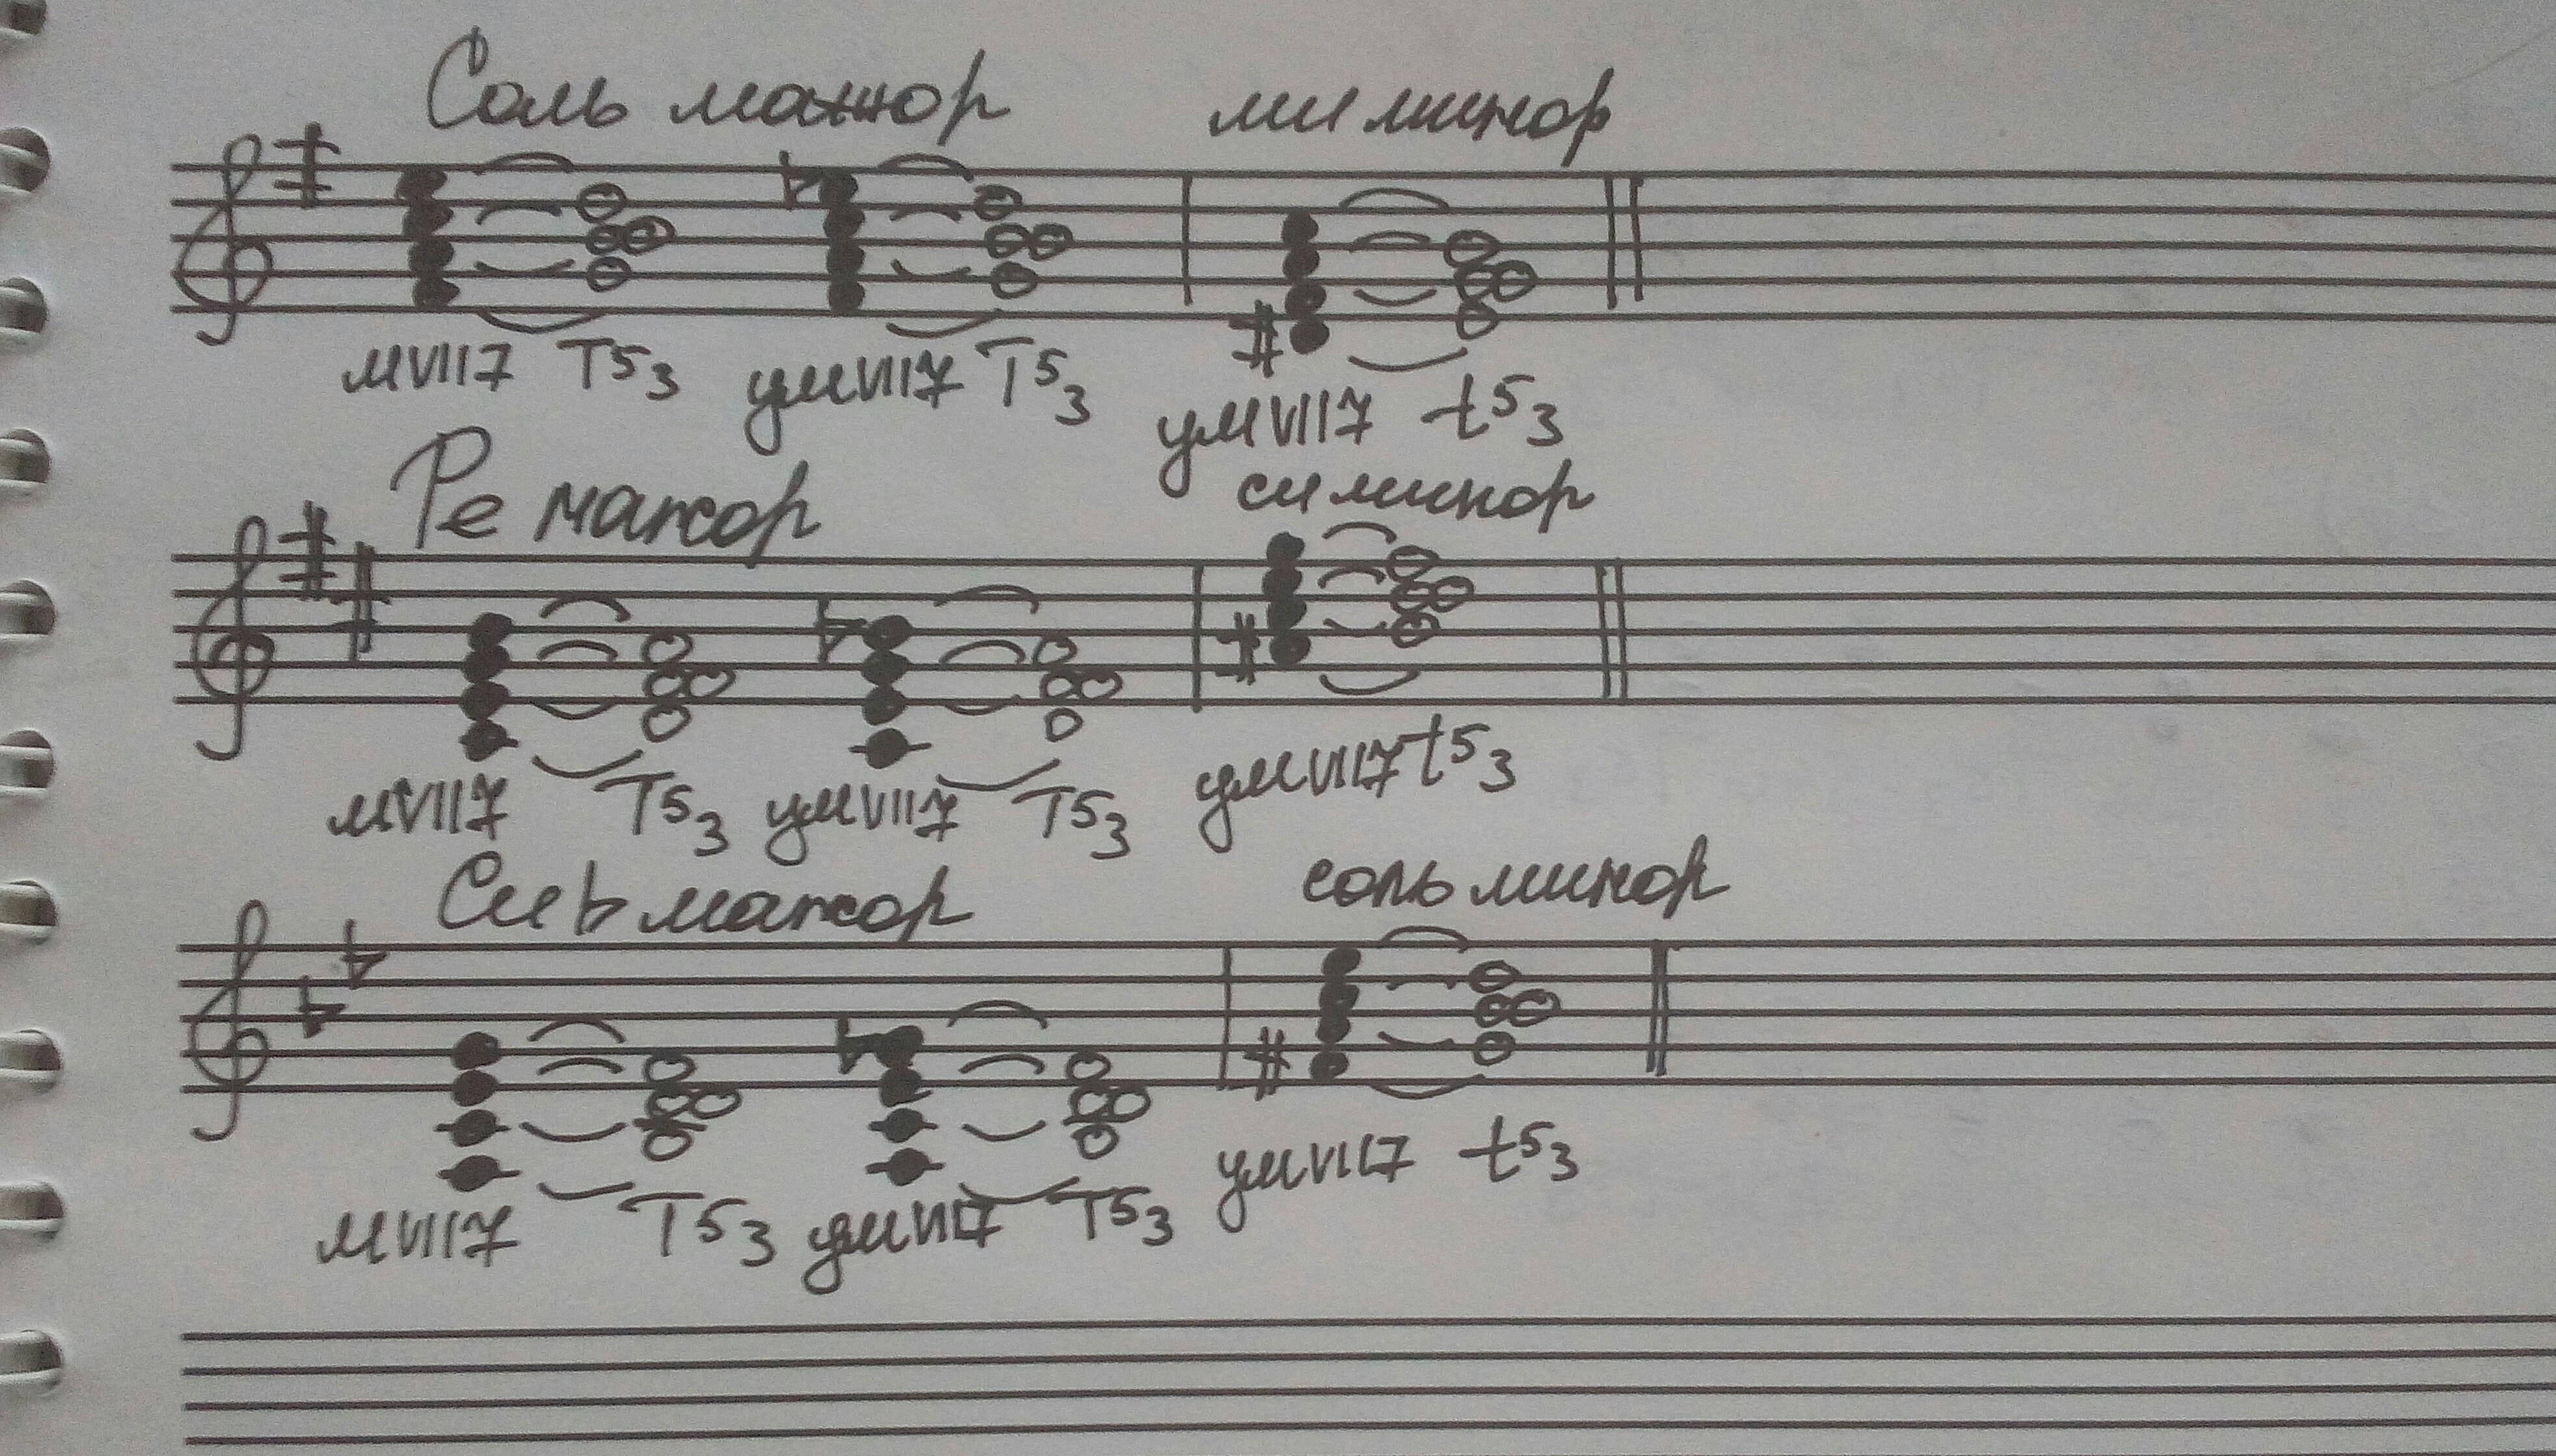 Соль мажор ми минор
мVII7 T53 умVII7 T53 умVII7 t53
Ре мажор си минор
мVII7 T53 умVII7 T53 умVII7 t53
Си b мажор соль минор
мVII7 T53 умVII7 T53 умVII7 t53